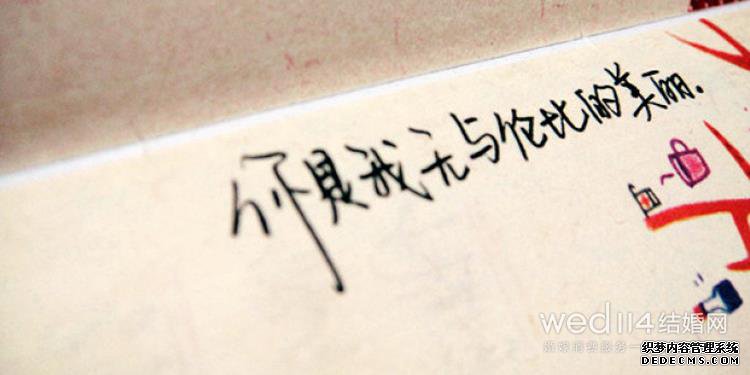 你是我无与伦比的美丽.
wed114结婚网
织梦内容管理系统
DEDECMS.COM